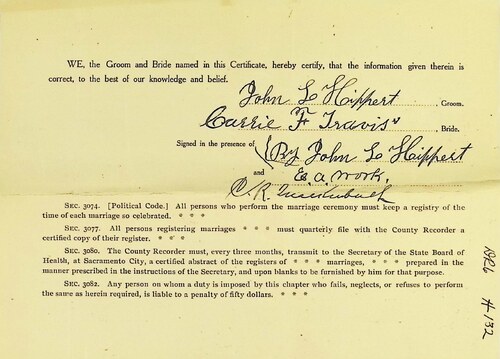 WE, the Groom and Bride named in this Certificate, hereby certify, that the information given therein is
correct, to the best of our knowledge and belief.
John L Hippert , Groom.
Carrie F Travis , Bride.
Signed in the presence of By John L Hippert
and E. A. Work.
C. R.
SEC. 3074. [Political Code.] All persons who perform the marriage ceremony must keep a registry of the
time of each marriage so celebrated. * * *
SEC. 3077. All persons registering marriages *** must quarterly file with the County Recorder
a certified copy of their register. * * *
SEC. 3080. The County Recorder must, every three months, transmit to the Secretary of the State Board of
Health, at Sacramento City, a certified abstract of the registers of *** marriages, *** prepared in the
manner prescribed in the instructions of the Secretary, and upon blanks to be furnished by him for that purpose.
SEC. 3082. Any person on whom a duty is imposed by this chapter who fails, neglects, or refuses to perform
the same as herein required, is liable to a penalty of fifty dollars. * * *
1926 #132